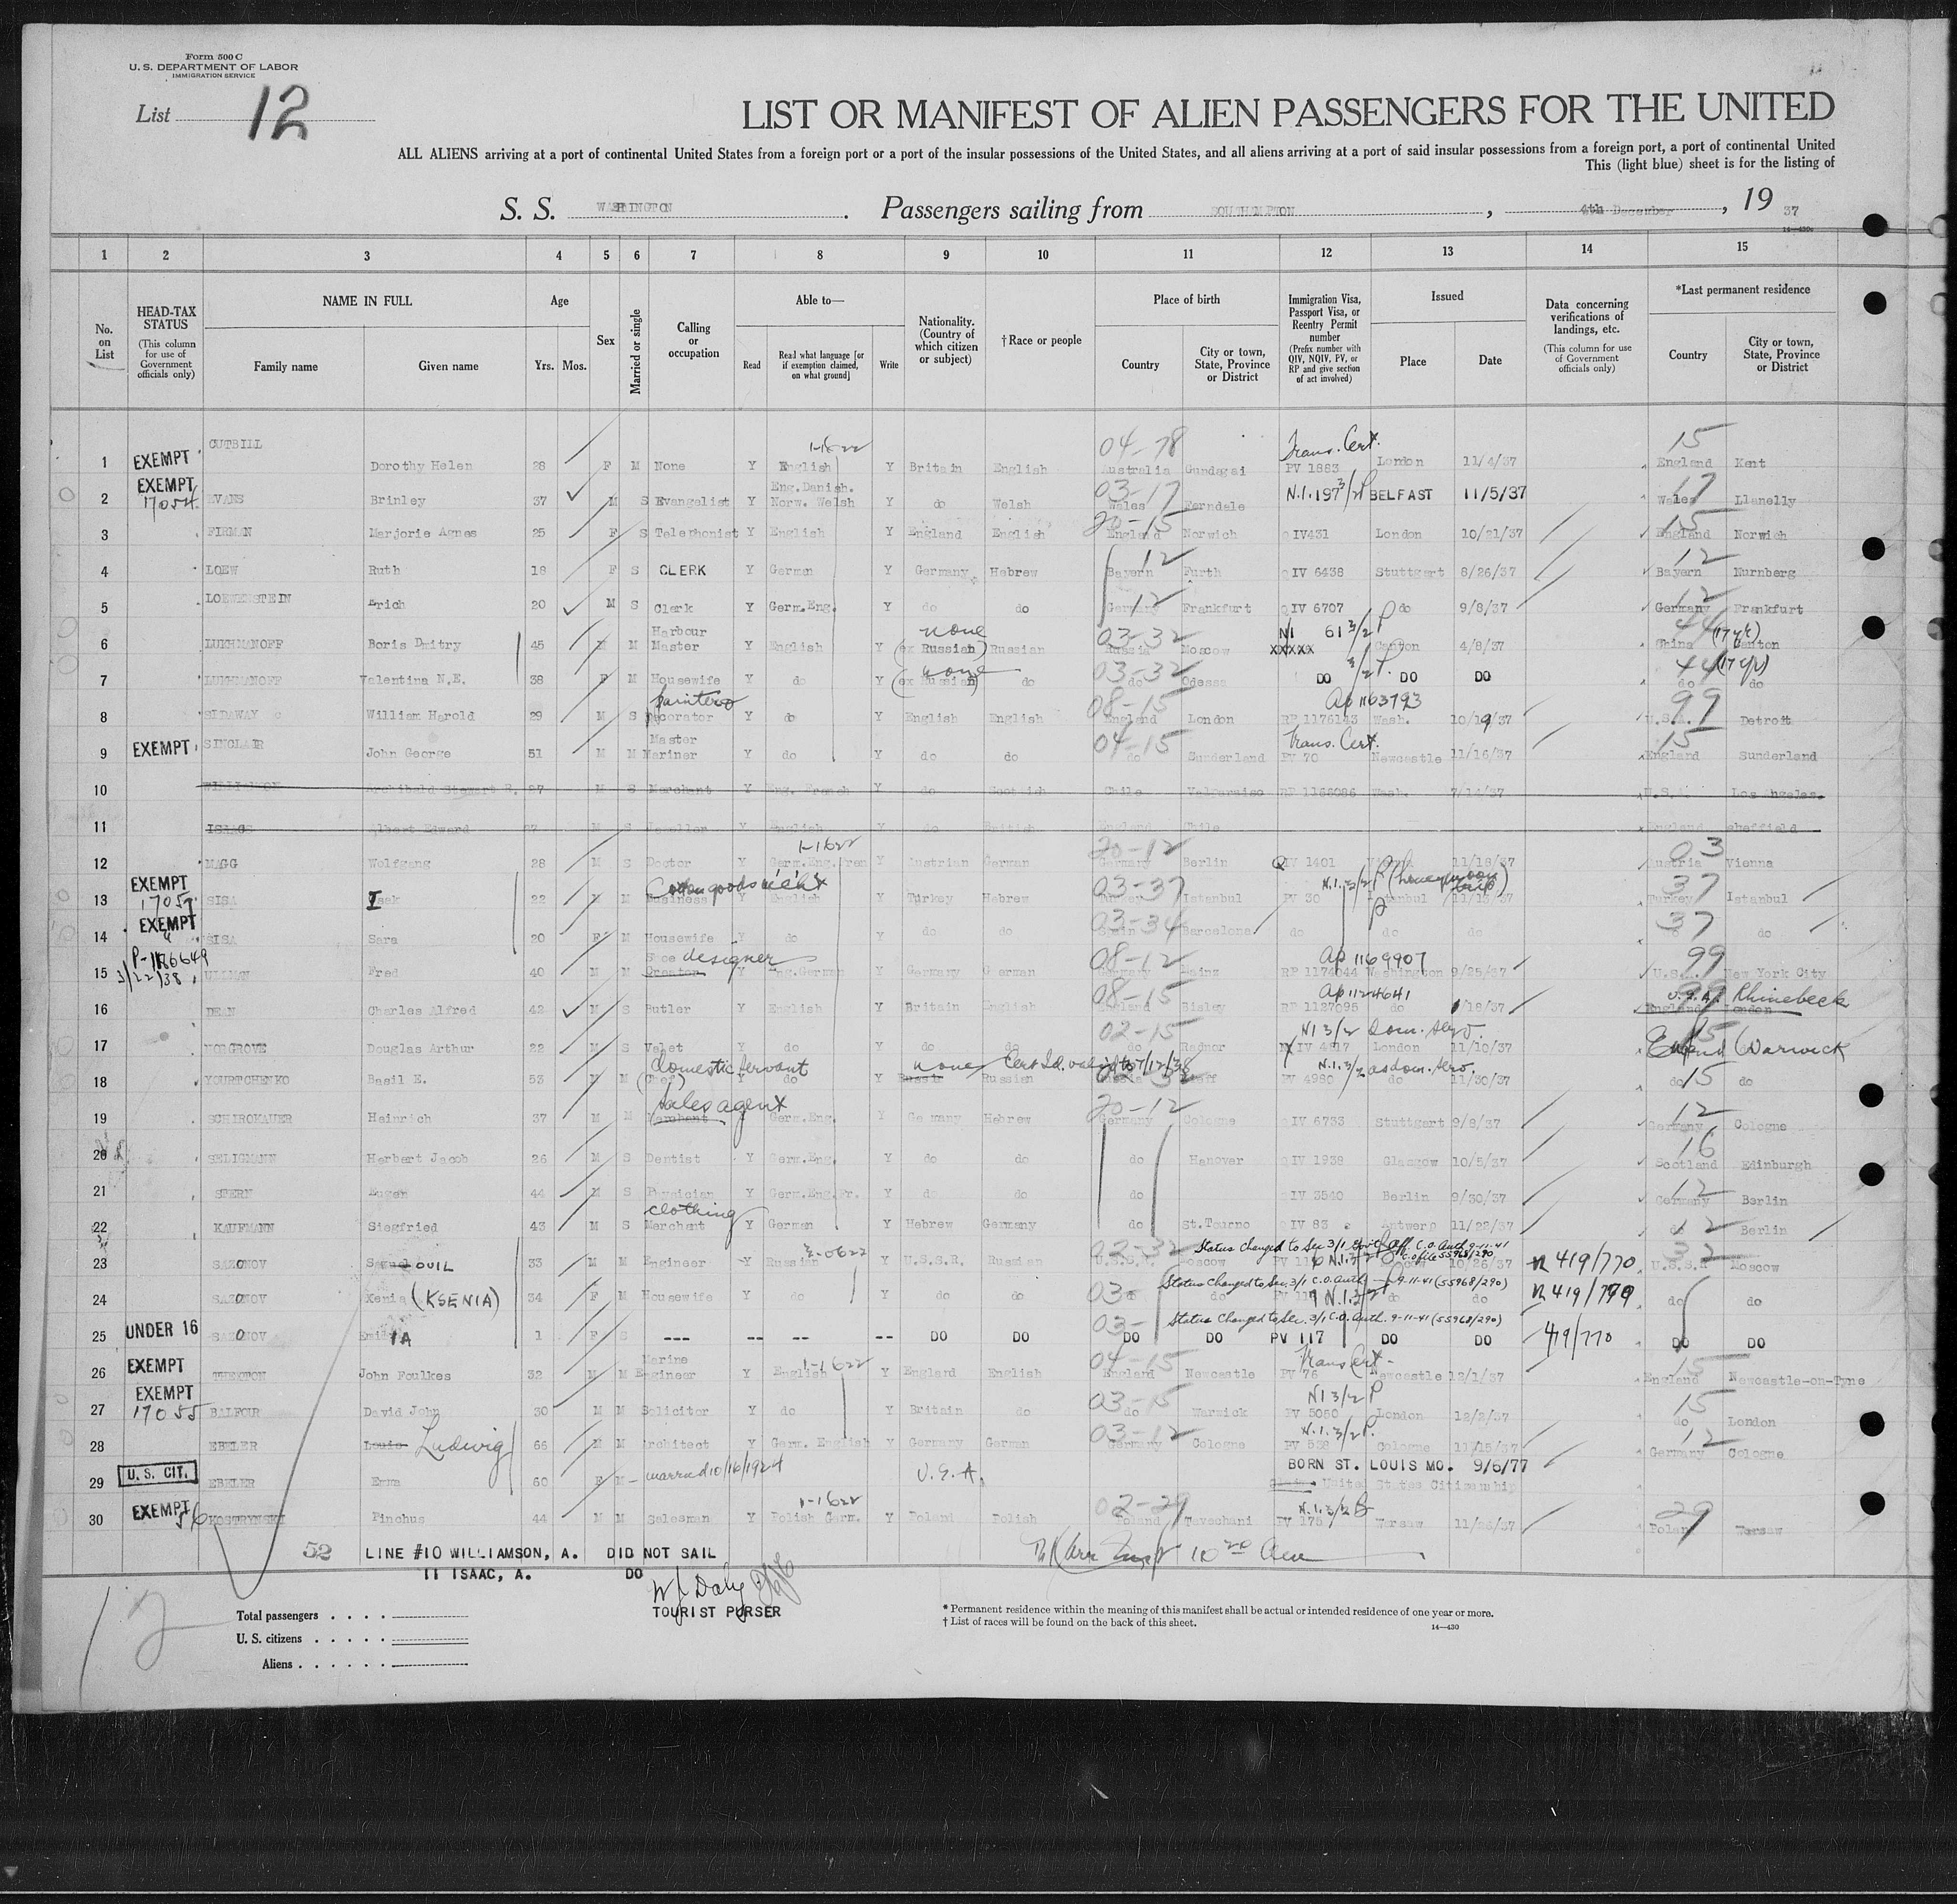 Form 500 C
U. S. DEPARTMENT OF LABOR
IMMIGRATION SERVICE
List 12
LIST OR MANIFEST OF ALIEN PASSENGERS FOR THE UNITED
ALL ALIENS arriving at a port of continental United States from a foreign port or a port of the insular possessions of the United States, and all aliens arriving at a port of said insular possessions from a foreign port, a port of continental United
This (light blue) sheet is for the listing of
S. S. WASHINGTON. Passengers sailing from SOUTHAMPTON, 4th December, 19 37
14—430c
1 2 3 4 5 6 7 8 9 10 11 12 13 14 15
No. on List
HEAD-TAX STATUS (This column for use of Government officials only)
NAME IN FULL Family name Given name
Age Yrs. Mos.
Sex
Married or single
Calling or occupation
Able to— Read Read what language [or if exemption claimed, on what ground] Write
Nationality. (Country of which citizen or subject)
†Race or people
Place of birth Country City or town, State, Province or District
Immigration Visa, Passport Visa, or Reentry Permit number (Prefix number with QIV, NQIV, PV, or RP and give section of act involved)
Issued Place Date
Data concerning verifications of landings, etc. (This column for use of Government officials only)
*Last permanent residence Country City or town, State, Province or District
1-1622 04-78 Trans. Cert. 15
1 EXEMPT CUTBILL Dorothy Helen 28 F M None Y English Y Britain English Australia Gundagai PV 1883 London 11/4/37 England Kent
2 EXEMPT 17054 EVANS Brinley 37 M S Evangelist Y Eng.Danish. Norw. Welsh Y do Welsh 03-17 Wales Ferndale N.I.197 3/2 P BELFAST 11/5/37 17 Wales Llanelly
3 FIRMAN Marjorie Agnes 25 F S Telephonist Y English Y England English 20-15 England Norwich QIV431 London 10/21/37 15 England Norwich
4 LOEW Ruth 18 F S CLERK Y German Y Germany Hebrew 12 Bayern Furth QIV 6438 Stuttgart 8/26/37 12 Bayern Nurnberg
5 LOEWENSTEIN Erich 20 M S Clerk Y Germ.Eng. Y do do 12 Germany Frankfurt QIV 6707 do 9/8/37 12 Germany Frankfurt
6 LUKHMANOFF Boris Dmitry 45 M M Harbour Master Y English Y none (ex Russian) Russian 03-32 Russia Moscow NI 61 3/2 P XXXXX Canton 4/8/37 44 (17 yr) China Canton
7 LUKHMANOFF Valentina N.E. 38 F M Housewife Y do Y none (ex Russian) do 03-32 do Odessa DO 3/2 P. DO DO 44 (17 yr) do do
8 SIDAWAY William Harold 29 M S painter Decorator Y do Y English English 08-15 England London Ap 1163793 RP 1176143 Wash. 10/19/37 99 U.S.A. Detroit
9 EXEMPT SINCLAIR John George 51 M M Master Mariner Y do Y do do 04-15 do Sunderland Trans. Cert. PV 70 Newcastle 11/16/37 15 England Sunderland
10 WILLIAMSON Archibald Stewart R. 27 M S Merchant Y Eng. French Y do Scottish Chile Valparaiso RP 1166086 Wash. 7/14/37 U.S.A. Los Angeles.
11 ISAACS Albert Edward M S Y English Y do British England England Sheffield
12 MAGG Wolfgang 28 M S Doctor Y 1-1622 Germ.Eng.Fren Y Austrian German 20-12 Germany Berlin QIV 1401 Vienna 11/18/37 03 Austria Vienna
13 EXEMPT 17057 SISA Isak 22 M M Cotton goods Business Y English Y Turkey Hebrew 03-37 Turkey Istanbul N.I. 3/2 P (honeymoon trip) PV 30 Istanbul 11/15/37 37 Turkey Istanbul
14 EXEMPT SISA Sara 20 F M Housewife Y do Y do do 03-34 Spain Barcelona do P do do 37 do do
15 P-1186649 3/22/38 ULLMAN Fred 40 M M Shoe designer Creator Y Eng.German Y Germany German 08-12 Germany Mainz Ap 1169907 RP 1174044 Washington 9/25/37 99 U.S.A. New York City
16 DEAN Charles Alfred 42 M S Butler Y English Y Britain English 08-15 England Bisley Ap 1124641 RP 1127095 do 1/18/37 99 U.S.A. Rhinebeck England London
17 NORGROVE Douglas Arthur 22 M S Valet Y do Y do do 02-15 do Radnor NI 3/2 Dom. Serv. IV 4817 London 11/10/37 15 England Warwick
18 YOURTCHENKO Basil E. 53 M M Domestic Servant (Chef) Y do Y none Russia Russian Cert Id. valid to 7/12/38 02-32 Russia N.I. 3/2 as dom. serv. PV 4990 do 11/30/37 15 do do
19 SCHIROKAUER Heinrich 37 M M Sales agent Merchant Y Germ.Eng. Y Germany Hebrew 20-12 Germany Cologne QIV 6733 Stuttgart 9/8/37 12 Germany Cologne
20 SELIGMANN Herbert Jacob 26 M S Dentist Y Germ.Eng. Y do do do Hanover QIV 1938 Glasgow 10/5/37 16 Scotland Edinburgh
21 STERN Eugen 44 M S Physician Y Germ.Eng.Fr. Y do do do IV 3540 Berlin 9/30/37 12 Germany Berlin
22 KAUFMANN Siegfried 43 M S clothing Merchant Y German Y Hebrew Germany do St.Tourno QIV 83 Antwerp 11/22/37 12 do Berlin
23 SAZONOV OUIL 33 M M Engineer Y 2-0622 Russian Y U.S.S.R. Russian 02-32 U.S.S.R. Moscow Status changed to Sec 3/1 Gov't Off. C.O. Auth 9-11-41 C.O file 55968/290 PV 116 N.I. 3/2 10/26/37 n 419/770 32 U.S.S.R. Moscow
24 SAZONOV Xenia (KSENIA) 34 F M Housewife Y do Y do do 03- do Status changed to Sec. 3/1 C.O. Auth. 9-11-41 (55968/290) N.I. 3/2 P do do n 419/770 do do
25 UNDER 16 SAZONOV Emilia 1 F S --- -- -- -- DO DO 03- DO DO Status changed to Sec. 3/1 C.O. Auth. 9-11-41 (55968/290) PV 117 DO DO 419/770 DO DO
26 EXEMPT John Foulkes 32 M M Marine Engineer Y 1-1622 English Y England English 04-15 England Newcastle Trans Cert - PV 76 Newcastle 12/1/37 15 England Newcastle-on-Tyne
27 EXEMPT 17055 BALFOUR David John 30 M M Solicitor Y do Y Britain do 03-15 do Warwick NI 3/2 P PV 5050 London 12/2/37 15 do London
28 EBELER Louis Ludwig 66 M M Architect Y Germ. English Y Germany German 03-12 Germany Cologne N.I. 3/2 P. PV 538 Cologne 11/15/37 12 Germany Cologne
29 U. S. CIT. EBELER Emma 60 F M - married 10/16/1924 U.S.A. BORN ST. LOUIS MO. 9/6/77 United States Citizenship
30 EXEMPT 56 KOSTRYNSKI Pinchus 44 M M Salesman Y 1-1622 Polish Germ. Y Poland Polish 02-29 Poland N.I. 3/2 B PV 175 Warsaw 11/26/37 29 Poland Warsaw
52 LINE #10 WILLIAMSON, A. DID NOT SAIL
11 ISAAC, A. DO
W J Daly
TOURIST PURSER
12
Total passengers . . . .
U. S. citizens . . . . .
Aliens . . . . . .
* Permanent residence within the meaning of this manifest shall be actual or intended residence of one year or more.
† List of races will be found on the back of this sheet.
14—430